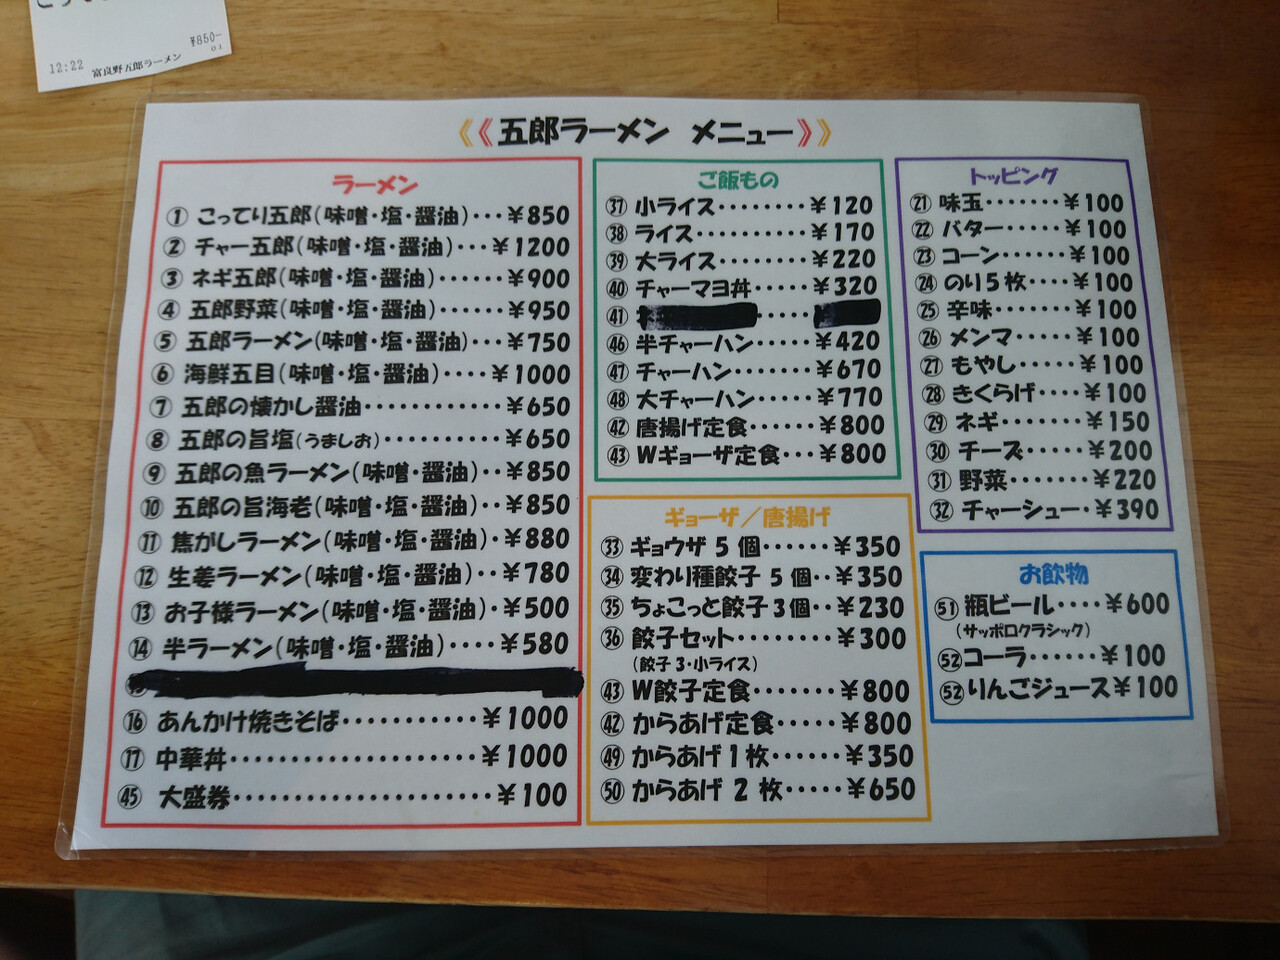 ¥850-
01
12:22 富良野五郎ラーメン
《《五郎ラーメン メニュー》》
ラーメン
① こってり五郎(味噌・塩・醤油)・・・¥850
② チャー五郎(味噌・塩・醤油)・・・¥1200
③ ネギ五郎(味噌・塩・醤油)・・・・・・¥900
④ 五郎野菜(味噌・塩・醤油)・・・・・・¥950
⑤ 五郎ラーメン(味噌・塩・醤油)・・・¥750
⑥ 海鮮五目(味噌・塩・醤油)・・・・・¥1000
⑦ 五郎の懐かし醤油・・・・・・・・・・・・¥650
⑧ 五郎の旨塩(うましお)・・・・・・・・・・¥650
⑨ 五郎の魚ラーメン(味噌・醤油)・・¥850
⑩ 五郎の旨海老(味噌・塩・醤油)・・¥850
⑪ 焦がしラーメン(味噌・塩・醤油)・¥880
⑫ 生姜ラーメン(味噌・塩・醤油)・・¥780
⑬ お子様ラーメン(味噌・塩・醤油)・¥500
⑭ 半ラーメン(味噌・塩・醤油)・・・・¥580
⑯ あんかけ焼きそば・・・・・・・・・・・¥1000
⑰ 中華丼・・・・・・・・・・・・・・・・・・・・¥1000
㊺ 大盛券・・・・・・・・・・・・・・・・・・・・・¥100
ご飯もの
㊲ 小ライス・・・・・・・・¥120
㊳ ライス・・・・・・・・・・¥170
㊴ 大ライス・・・・・・・・¥220
㊵ チャーマヨ丼・・・・・¥320
㊶ ・・・・・
㊻ 半チャーハン・・・・・¥420
㊼ チャーハン・・・・・・・¥670
㊽ 大チャーハン・・・・・¥770
㊷ 唐揚げ定食・・・・・・¥800
㊸ Wギョーザ定食・・・¥800
ギョーザ/唐揚げ
㉝ ギョウザ 5 個・・・・・・¥350
㉞ 変わり種餃子 5 個・・¥350
㉟ ちょこっと餃子3個・・¥230
㊱ 餃子セット・・・・・・・・¥300
(餃子 3・小ライス)
㊸ W餃子定食・・・・・・・¥800
㊷ からあげ定食・・・・・¥800
㊾ からあげ 1 枚・・・・・・¥350
㊿ からあげ 2 枚・・・・・¥650
トッピング
㉑ 味玉・・・・・・・¥100
㉒ バター・・・・・¥100
㉓ コーン・・・・・¥100
㉔ のり5枚・・・・¥100
㉕ 辛味・・・・・・・¥100
㉖ メンマ・・・・・¥100
㉗ もやし・・・・・¥100
㉘ きくらげ・・・・¥100
㉙ ネギ・・・・・・・¥150
㉚ チーズ・・・・・¥200
㉛ 野菜・・・・・・・¥220
㉜ チャーシュー・¥390
お飲物
51 瓶ビール・・・・¥600
(サッポロクラシック)
52 コーラ・・・・・・¥100
52 りんごジュース¥100